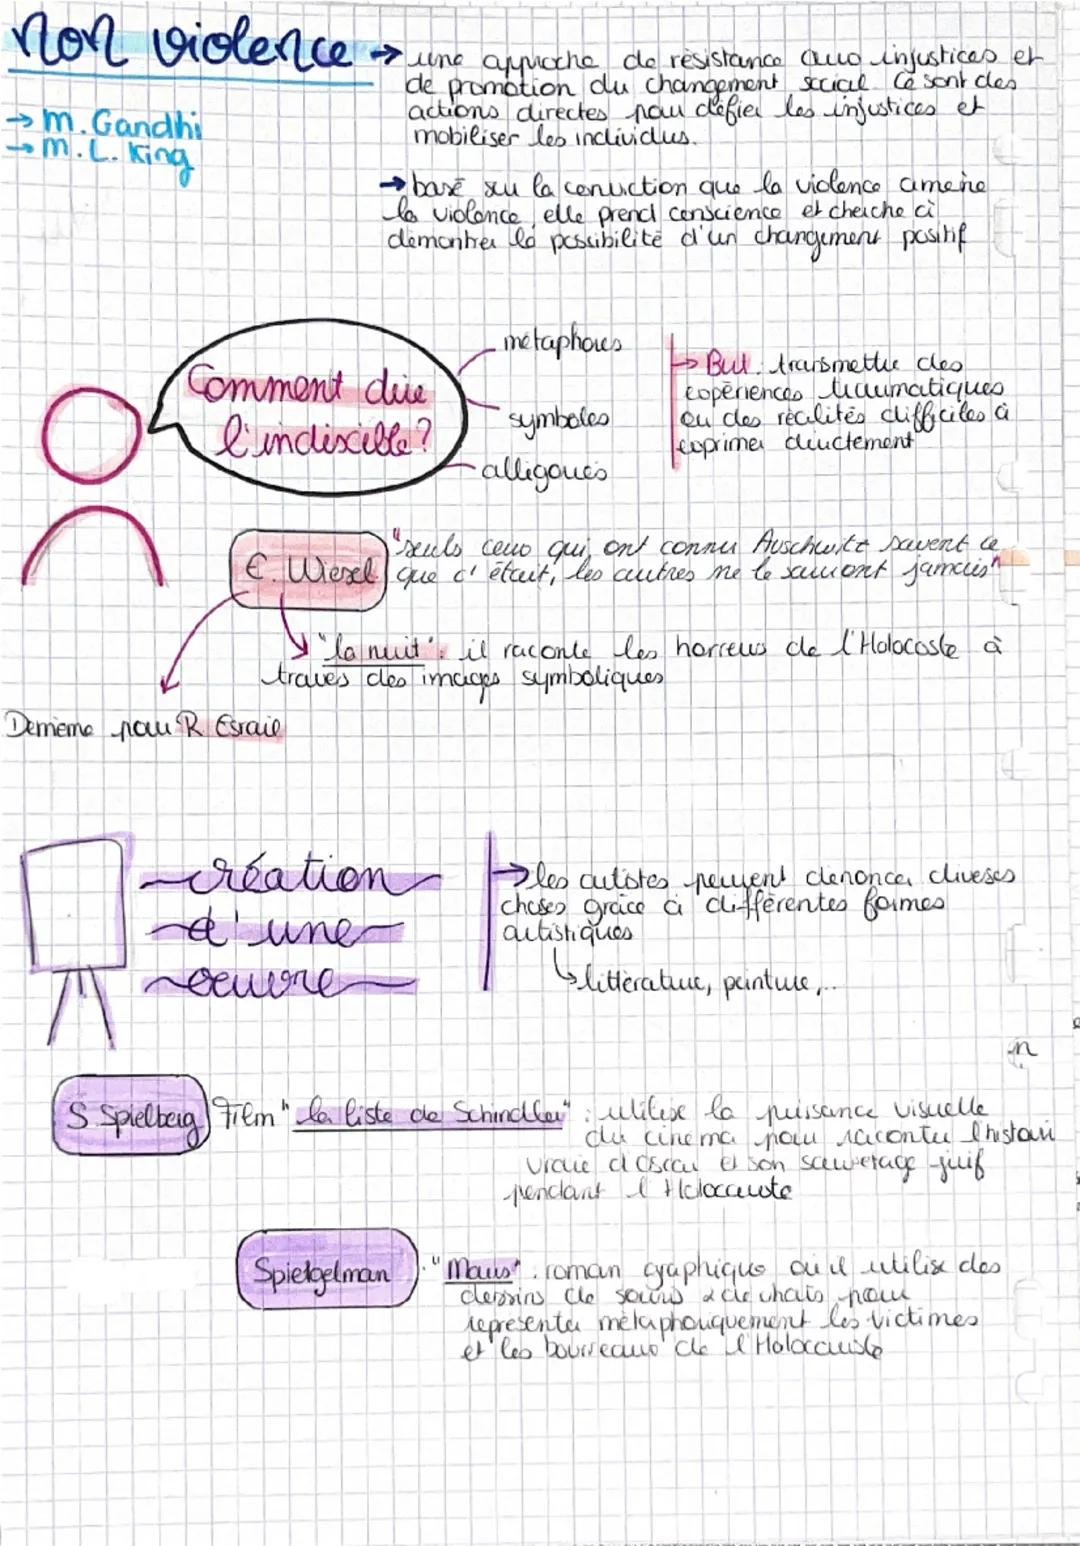 non violence → une approche de résistance aux injustices et
de promotion du changement social. Ce sont des
actions directes pour défier les injustices et
mobiliser les individus.
→ M. Gandhi
→ M. L. King
→ basé sur la conviction que la violence amène
la violence, elle prend conscience et cherche à
démontrer la possibilité d'un changement positif
Comment dire
l'indiscible ?
métaphores
symboles
alligories
→ But : transmettre des
expériences traumatiques
ou des réalités difficiles à
exprimer directement
E. Wiesel "seuls ceux qui ont connu Auschwitz savent ce
que c'était, les autres ne le sauront jamais"
"la nuit" : il raconte les horreurs de l'Holocoste à
travers des images symboliques
Demême pour R. Esrail
création
d'une
oeuvre
→ les artistes peuvent dénoncer diverses
choses grâce à différentes formes
artistiques
↳ littérature, peinture,...
n
S. Spielberg Film "la liste de Schindler" : utilise la puissance visuelle
du cinéma pour raconter l'histoire
vraie d'Oscar et son sauvetage juif
pendant l'Holocauste
Spielgelman : "Maus" : roman graphique où il utilise des
dessins de souris & de chats pour
représenter métaphoriquement les victimes
et les bourreaux de l'Holocauste